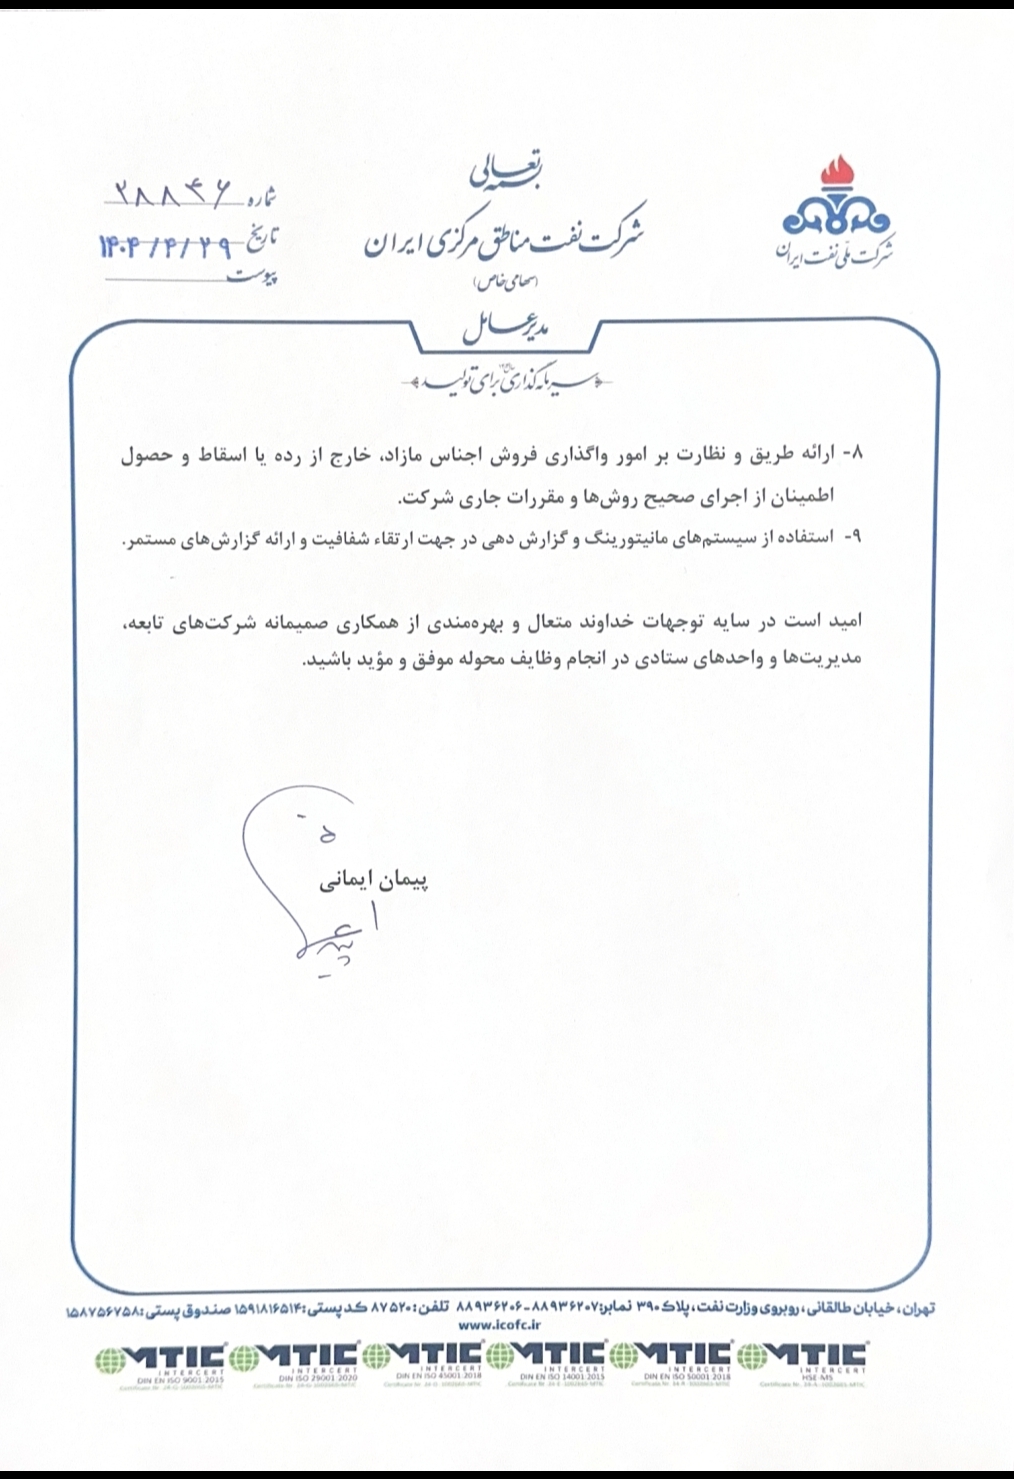 بسمه تعالی
شرکت نفت مناطق مرکزی ایران
(سهامی خاص)
مدیرعامل
سرمایه‌گذاری برای تولید
شرکت ملی نفت ایران
شماره ۲۸۸۴۶
تاریخ ۱۴۰۴/۴/۲۹
پیوست
۸- ارائه طریق و نظارت بر امور واگذاری فروش اجناس مازاد، خارج از رده یا اسقاط و حصول
اطمینان از اجرای صحیح روش‌ها و مقررات جاری شرکت.
۹- استفاده از سیستم‌های مانیتورینگ و گزارش دهی در جهت ارتقاء شفافیت و ارائه گزارش‌های مستمر.
امید است در سایه توجهات خداوند متعال و بهره‌مندی از همکاری صمیمانه شرکت‌های تابعه،
مدیریت‌ها و واحدهای ستادی در انجام وظایف محوله موفق و مؤید باشید.
پیمان ایمانی
تهران، خیابان طالقانی، روبروی وزارت نفت، پلاک ۳۹۰ نمابر: ۸۸۹۳۶۲۰۷-۸۸۹۳۶۲۰۶ تلفن: ۸۷۵۲۰ کد پستی: ۱۵۹۱۸۱۶۵۱۴ صندوق پستی: ۱۵۸۷۵۶۷۵۸
www.icofc.ir
MTIC MTIC MTIC MTIC MTIC MTIC
INTERCERT INTERCERT INTERCERT INTERCERT INTERCERT INTERCERT
DIN EN ISO 9001:2015 DIN ISO 29001:2020 DIN EN ISO 45001:2018 DIN EN ISO 14001:2015 DIN EN ISO 50001:2018 HSE-MS